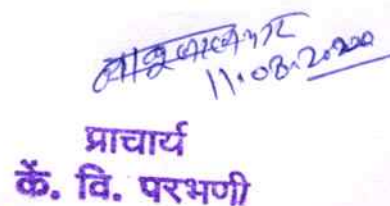 11.03.2020
प्राचार्य
कें. वि. परभणी